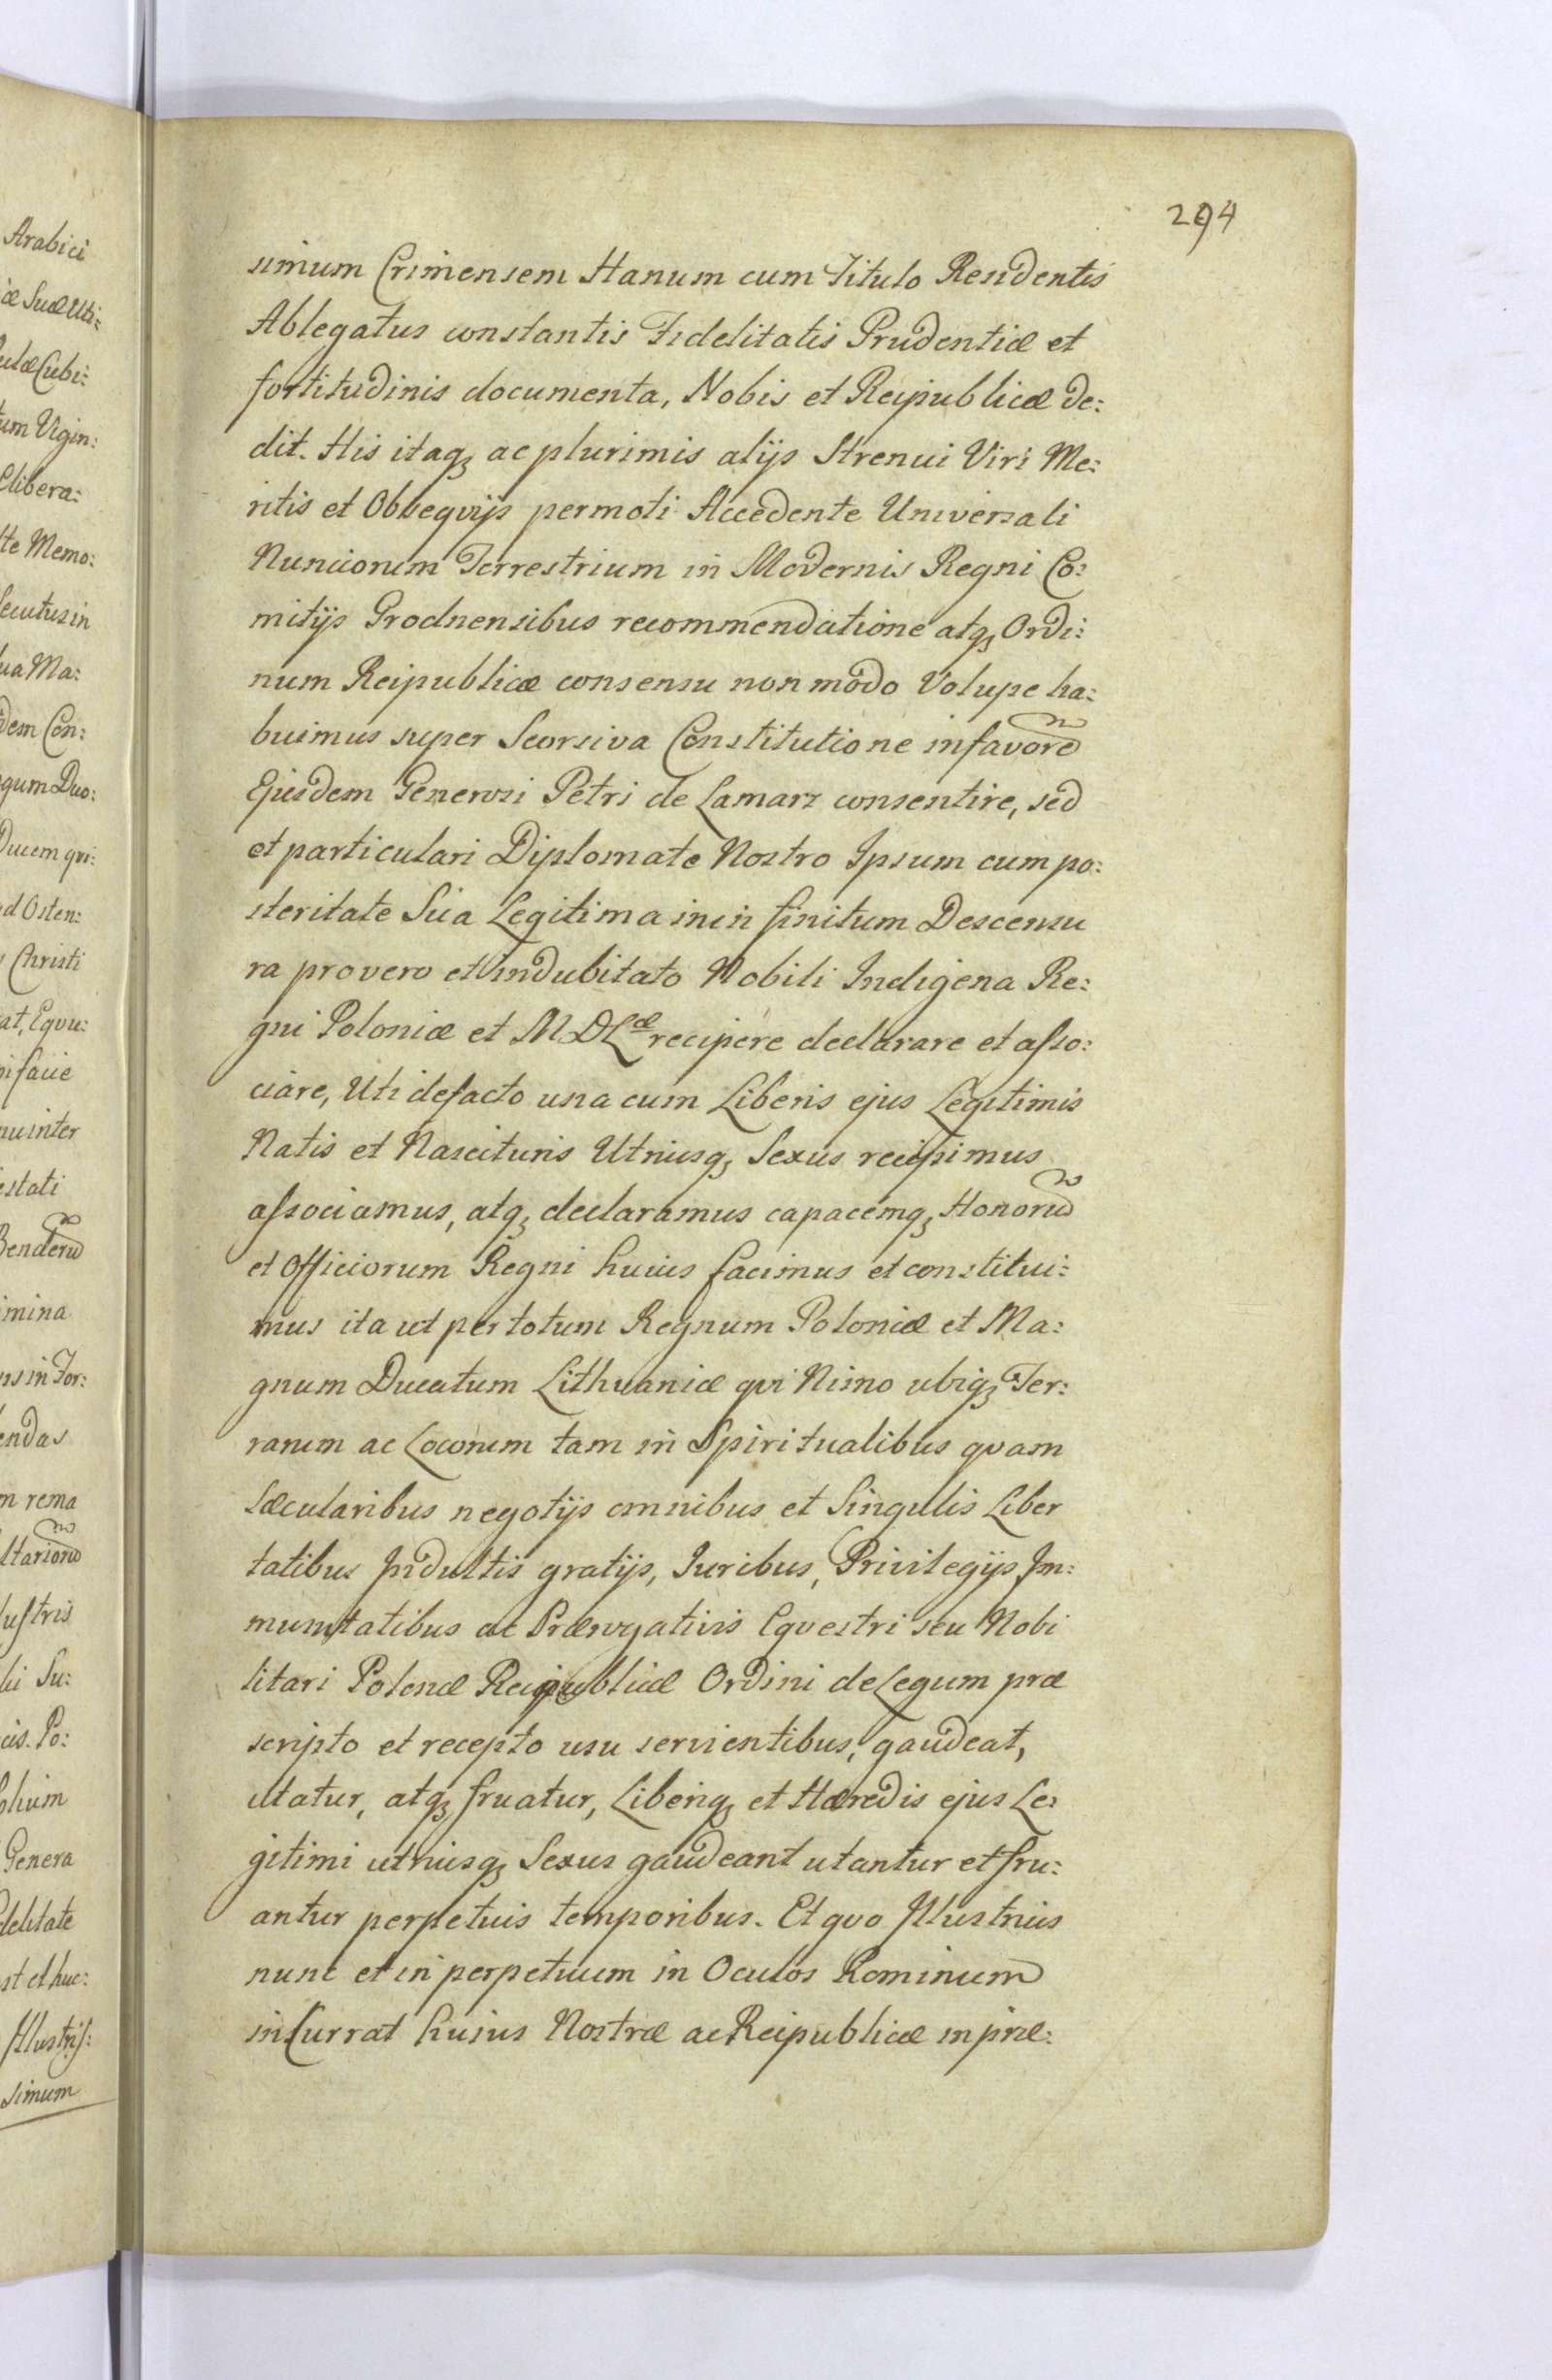 294
simum Crimensem Hanum cum Titulo Residentis
Ablegatus constantis Fidelitatis Prudentiæ et
fortitudinis documenta, Nobis et Reipublicæ de:
dit. His itaq₃ ac plurimis alijs Strenui Viri Me:
ritis et Obseqvijs permoti Accedente Universali
Nunciorum Terrestrium in Modernis Regni Co:
mitijs Grodnensibus recommendatione atq₃ Ordi:
num Reipublicæ consensu non modo Volupe ha:
buimus super Seorsiva Constitutione in favorē
Ejusdem Generosi Petri de Lamarz consentire, sed
et particulari Diplomate Nostro Ipsum cum po:
steritate Sua Legitima in in finitum Descensu
ra pro vero et indubitato Nobili Indigena Re:
gni Poloniæ et M D Læ recipere declarare et asso:
ciare, Uti de facto una cum Liberis ejus Legitimis
Natis et Nascituris Utriusq₃ Sexus recipimus
associamus, atq₃ declaramus capacemq₃ Honorū
et Officiorum Regni huius facimus et constitui:
mus ita ut per totum Regnum Poloniæ et Ma:
gnum Ducatum Lithvaniæ qvi Nimo ubiq₃ Ter:
rarum ac Locorum tam in Spiritualibus qvam
Sæcularibus negotijs omnibus et Singulis Liber
tatibus Indultis gratijs, Iuribus, Privilegijs Im:
munitatibus ac Prærogativis Eqvestri seu Nobi
litari Polonæ Reipublicæ Ordini de Legum præ
scripto et recepto usu servientibus, gaudeat,
utatur, atq₃ fruatur, Liberiq₃ et Hæredis ejus Le:
gitimi utriusq₃ Sexus gaudeant utantur et fru:
antur perpetuis temporibus. Et qvo Illustrius
nunc et in perpetuum in Oculos Rominum
in Currat hujus Nostræ ac Reipublicæ in præ: